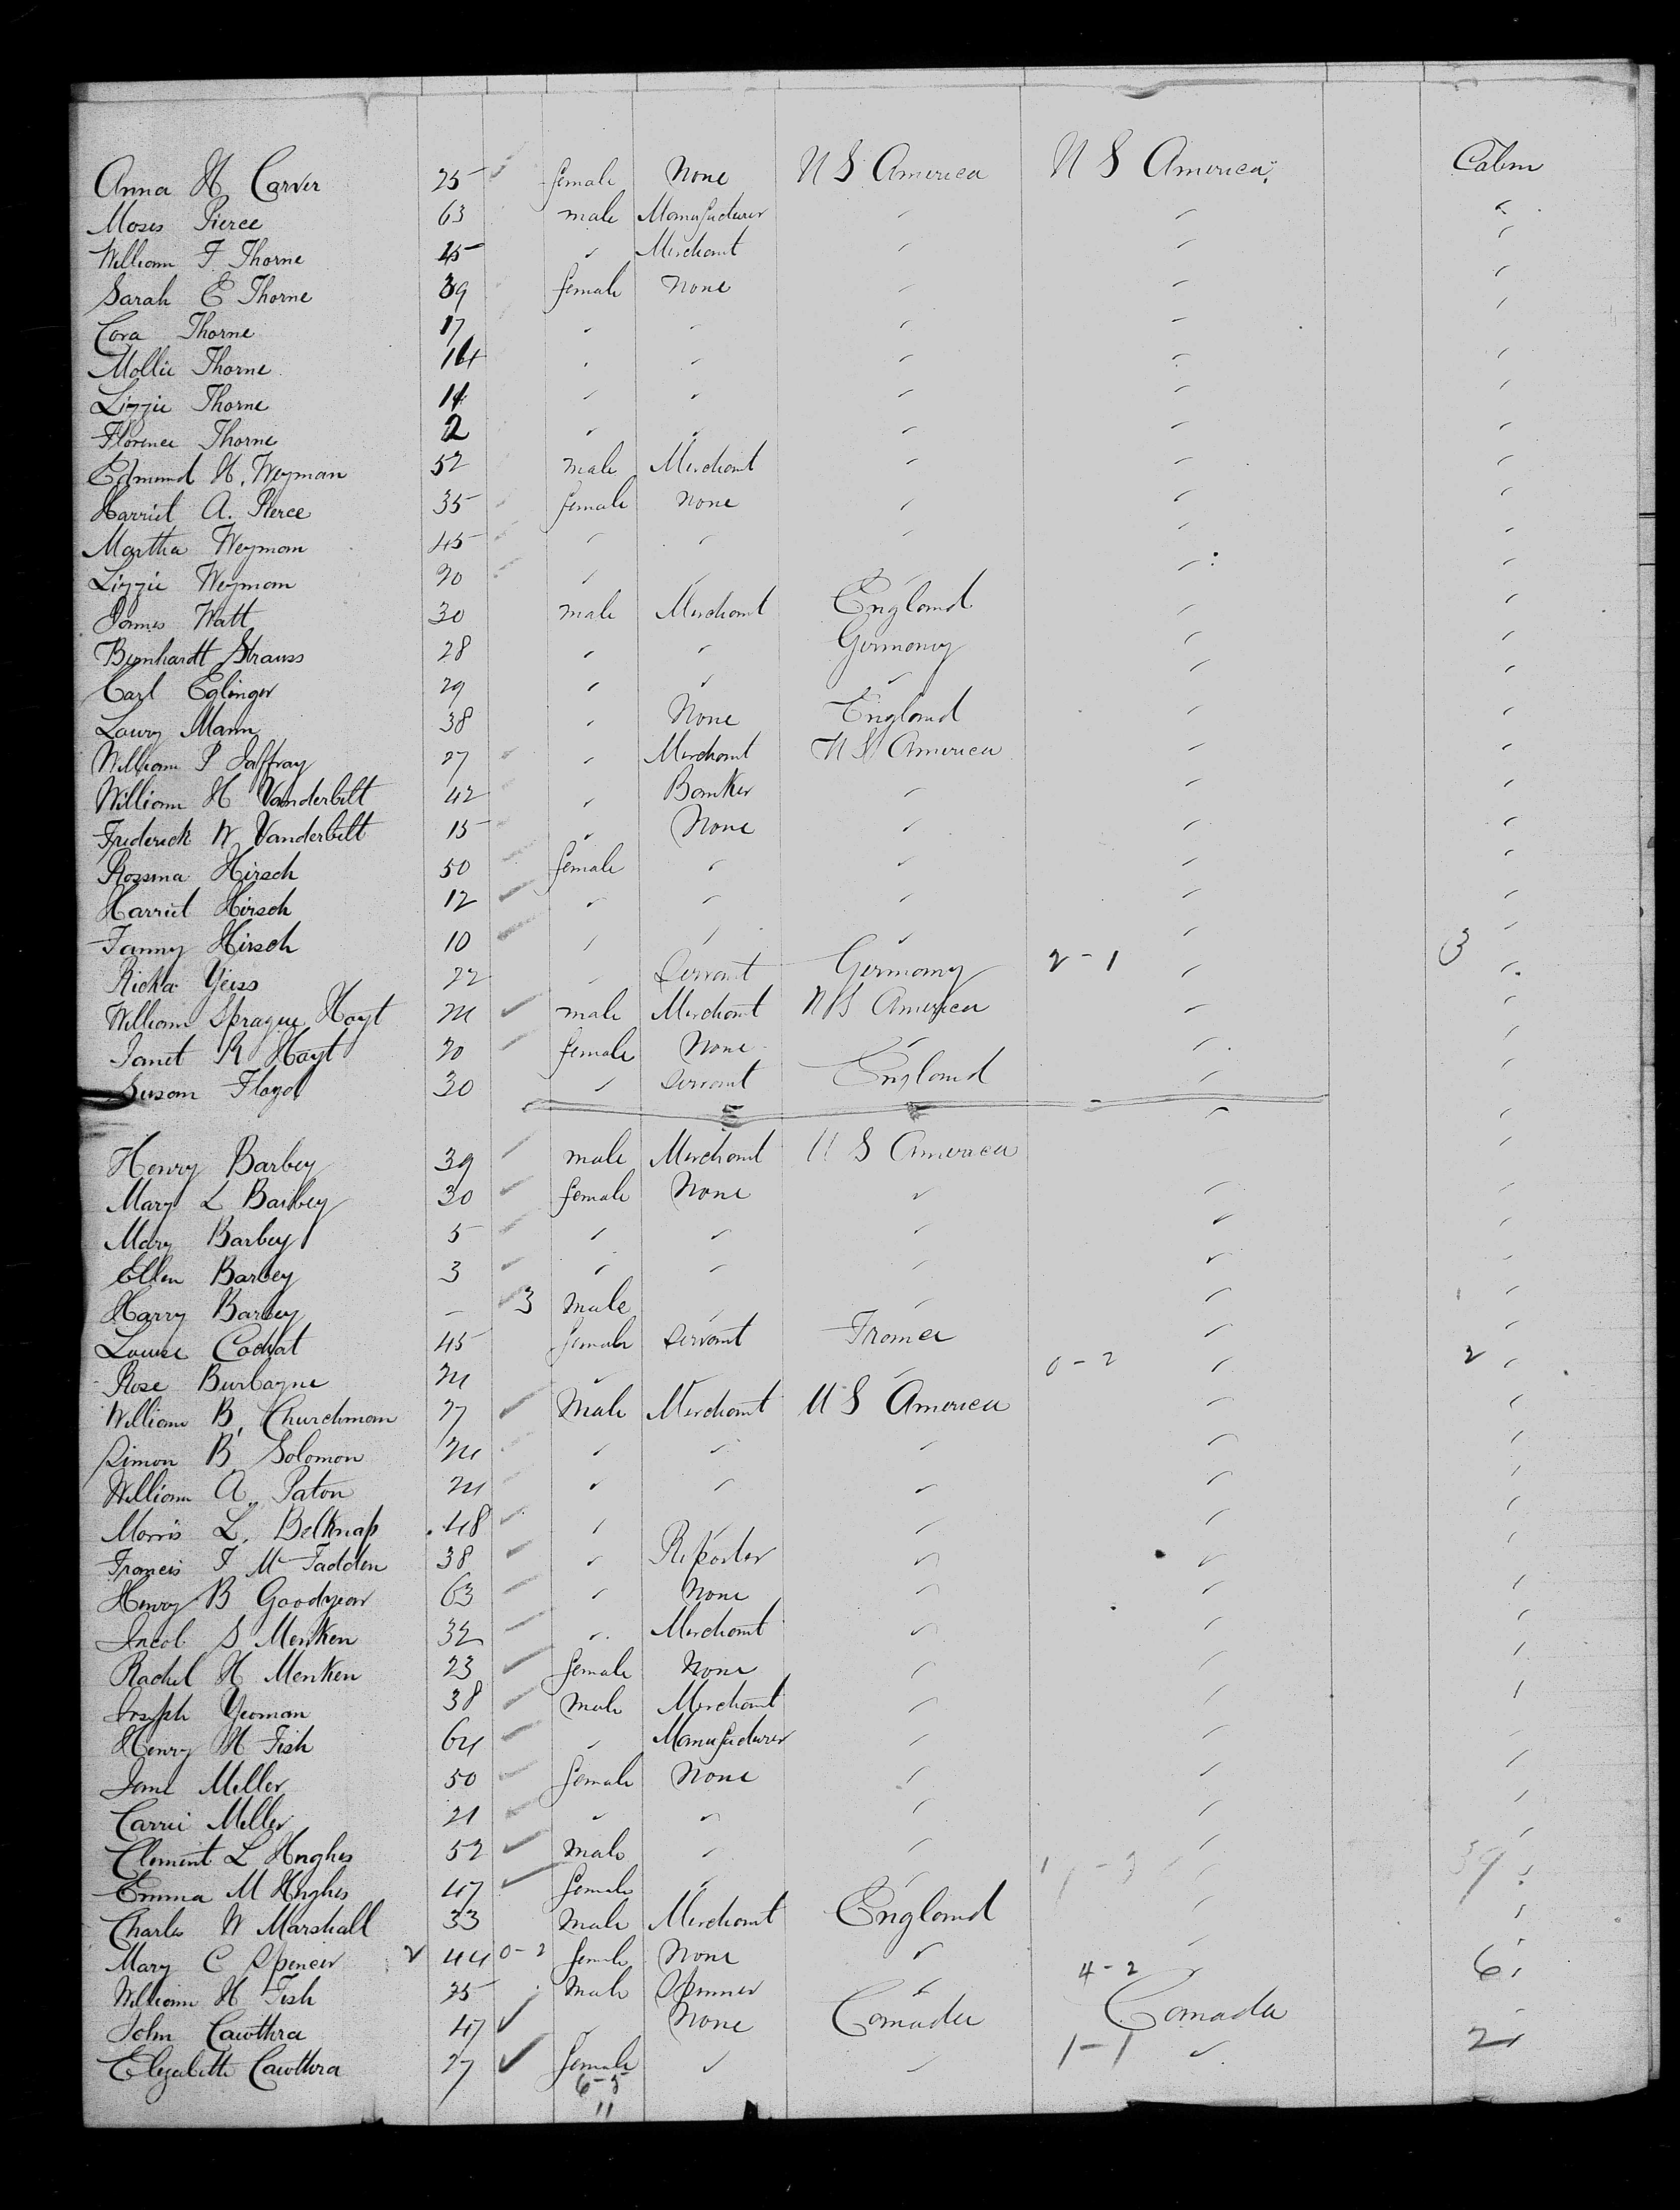 Anna H Carver 25 female None U S America U S America Cabin
Moses Pierce 63 male Manufacturer " " "
William F Thorne 45 " Merchant " " "
Sarah E Thorne 39 female None " " "
Cora Thorne 17 " " " " "
Mollie Thorne " " " " "
Lizzie Thorne " " " " "
Florence Thorne 2 " " " " "
Edmund H. Weyman 52 male Merchant " " "
Harriet A. Pierce 35 female None " " "
Martha Weyman 45 " " " " "
Lizzie Weyman 20 " " " " "
James Watt 30 male Merchant England " "
Bernhardt Strauss 28 " " Germany " "
Carl Eglinger 29 " " " " "
Lowry Mann 38 " None England " "
William P Jaffray 27 " Merchant U S America " "
William H Vanderbilt 42 " Banker " " "
Frederick W Vanderbilt 15 " None " " "
Rossina Hirsch 50 female " " " "
Harriet Hirsch 12 " " " " "
Fanny Hirsch 10 " " " " "
Ricka Yeiss 22 " Servant Germany 2-1 " 3 "
William Sprague Hoyt 24 male Merchant U S America " "
Janet R Hoyt 20 female None " " "
Susan Floyd 30 " Servant England " "
Henry Barbey 39 male Merchant U S America " "
Mary L Barbey 30 female None " " "
Mary Barbey 5 " " " " "
Ellen Barbey 3 " " " " "
Harry Barbey - 3 male " " " "
Louise Cochat 45 female Servant France " "
Rose Burbayne 24 " " " 0-2 " 2 "
William B. Churchman 27 Male Merchant U S America " "
Simon B Solomon 24 " " " " "
William A. Paton 24 " " " " "
Morris L. Belknap 48 " " " " "
Francis F McFadden 38 " Reporter " " "
Henry B Goodyear 63 " None " " "
Jacob S Menken 32 " Merchant " " "
Rachel H Menken 23 female None " " "
Joseph Yeoman 38 male Merchant " " "
Henry H Fish 64 " Manufacturer " " "
Jane Miller 50 female None " " "
Carrie Miller 21 " " " " "
Clement L Hughes 52 male " " " "
Emma M Hughes 47 female " " " "
Charles W Marshall 33 male Merchant England " "
Mary C Spencer 2 44 0-2 female None " "
William H Fish 25 male Spinner " 4-2 " 6 "
John Cawthra 47 " None Canada Canada "
Elizabeth Cawthra 27 female " " 1-1 " 2 "
6-5
11